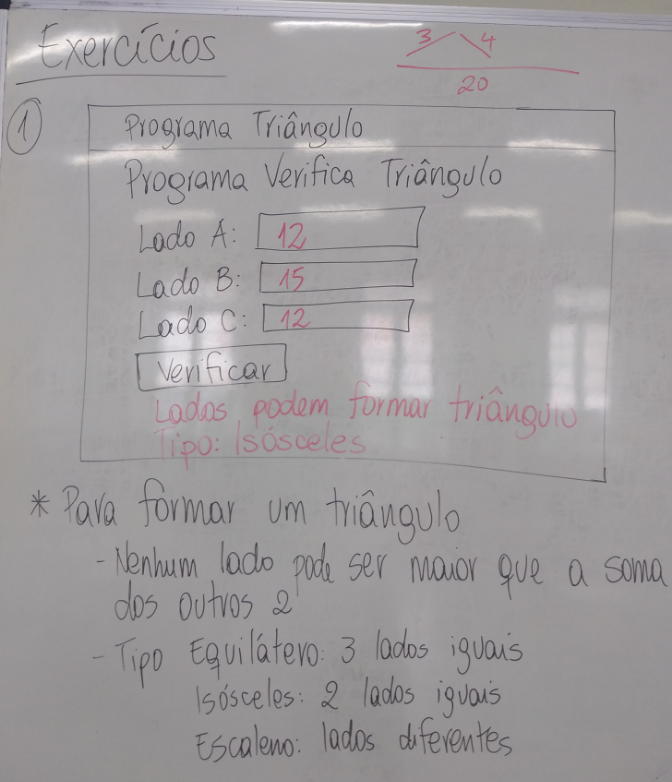 Exercícios
3 4
20
1
Programa Triângulo
Programa Verifica Triângulo
Lado A: 12
Lado B: 15
Lado C: 12
Verificar
Lados podem formar triângulo
Tipo: Isósceles
* Para formar um triângulo
- Nenhum lado pode ser maior que a soma
dos outros 2
- Tipo Equilátero: 3 lados iguais
Isósceles: 2 lados iguais
Escaleno: lados diferentes